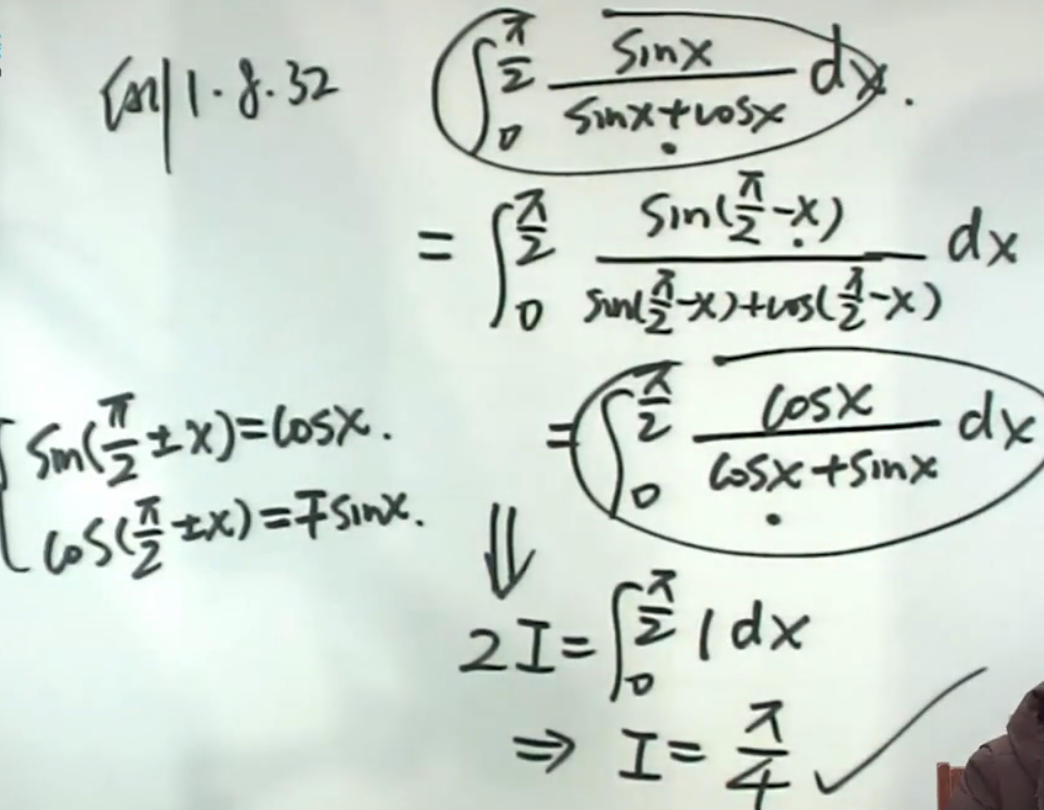 例1.8.32 ∫₀^{π/2} sinx/(sinx+cosx) dx.
= ∫₀^{π/2} sin(π/2-x)/(sin(π/2-x)+cos(π/2-x)) dx
= ∫₀^{π/2} cosx/(cosx+sinx) dx
{ sin(π/2±x)=cosx.
cos(π/2±x)=∓sinx.
⇓
2I=∫₀^{π/2} 1dx
⇒ I=π/4 ✓